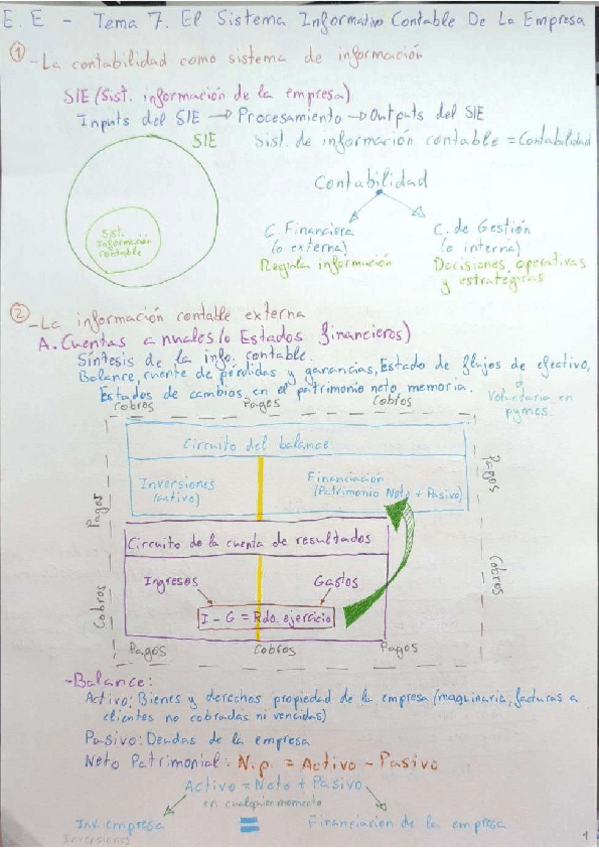 E. E - Tema 7. El Sistema Informativo Contable De La Empresa
① - La contabilidad como sistema de información
SIE (Sist. información de la empresa)
Inputs del SIE → Procesamiento → Outputs del SIE
SIE
Sist. de información contable = Contabilidad
Sist. Información contable
Contabilidad
C. Financiera
(o externa)
Regula información
C. de Gestión
(o interna)
Decisiones operativas
y estratégicas
② - La información contable externa
A. Cuentas anuales (o Estados financieros)
Síntesis de la info. contable.
Balance, cuenta de pérdidas y ganancias, Estado de flujos de efectivo,
Estados de cambios en el patrimonio neto, memoria.
Voluntaria en
pymes.
Cobros Pagos Cobros
Circuito del balance
Inversiones
(activo)
Financiación
(Patrimonio Neto + Pasivo)
Pagos
Pagos
Circuito de la cuenta de resultados
Ingresos Gastos
I - G = Rdo. ejercicio
Cobros
Cobros
Pagos Cobros Pagos
- Balance:
Activo: Bienes y derechos propiedad de la empresa (maquinaria, facturas a
clientes no cobradas ni vencidas)
Pasivo: Deudas de la empresa
Neto Patrimonial: N.p. = Activo - Pasivo
Activo = Neto + Pasivo
en cualquier momento
Inv. empresa = Financiación de la empresa
Inversiones
1